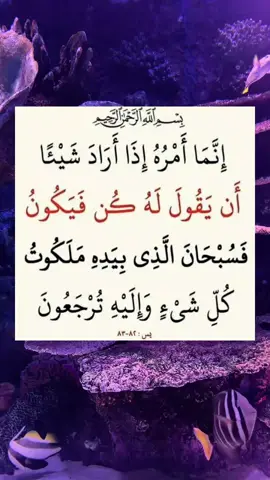 بِسْمِ اللَّهِ الرَّحْمَٰنِ الرَّحِيمِ
إِنَّمَا أَمْرُهُ إِذَا أَرَادَ شَيْئًا
أَن يَقُولَ لَهُ كُن فَيَكُونُ
فَسُبْحَانَ الَّذِى بِيَدِهِ مَلَكُوتُ
كُلِّ شَىْءٍ وَإِلَيْهِ تُرْجَعُونَ
يس : ٨٢-٨٣